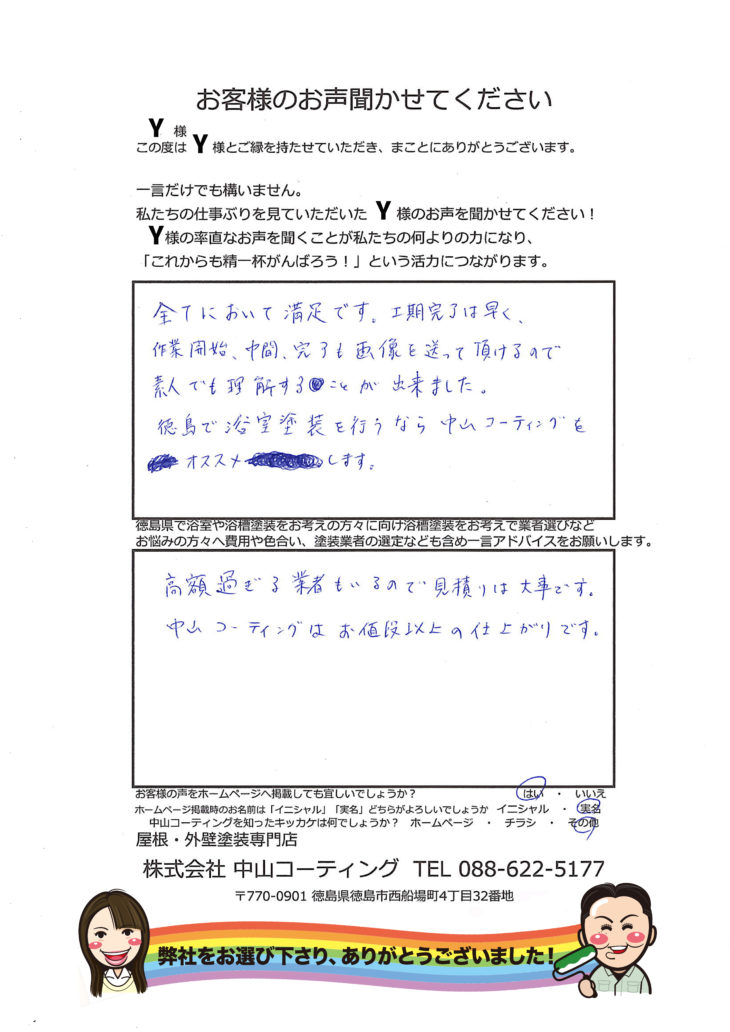 お客様のお声聞かせてください
Y 様
この度は Y 様とご縁を持たせていただき、まことにありがとうございます。
一言だけでも構いません。
私たちの仕事ぶりを見ていただいた Y 様のお声を聞かせてください！
Y様の率直なお声を聞くことが私たちの何よりの力になり、
「これからも精一杯がんばろう！」という活力につながります。
全てにおいて満足です。工期完了は早く、
作業開始、中間、完了も画像を送って頂けるので
素人でも理解することが出来ました。
徳島で浴室塗装を行うなら中山コーティングを
オススメします。
徳島県で浴室や浴槽塗装をお考えの方々に向け浴槽塗装をお考えで業者選びなど
お悩みの方々へ費用や色合い、塗装業者の選定なども含め一言アドバイスをお願いします。
高額過ぎる業者もいるので見積りは大事です。
中山コーティングはお値段以上の仕上がりです。
お客様の声をホームページへ掲載しても宜しいでしょうか？ はい ・ いいえ
ホームページ掲載時のお名前は「イニシャル」「実名」どちらがよろしいでしょうか イニシャル ・ 実名
中山コーティングを知ったキッカケは何でしょうか？ ホームページ ・ チラシ ・ その他
屋根・外壁塗装専門店
株式会社 中山コーティング TEL 088-622-5177
〒770-0901 徳島県徳島市西船場町4丁目32番地
弊社をお選び下さり、ありがとうございました！